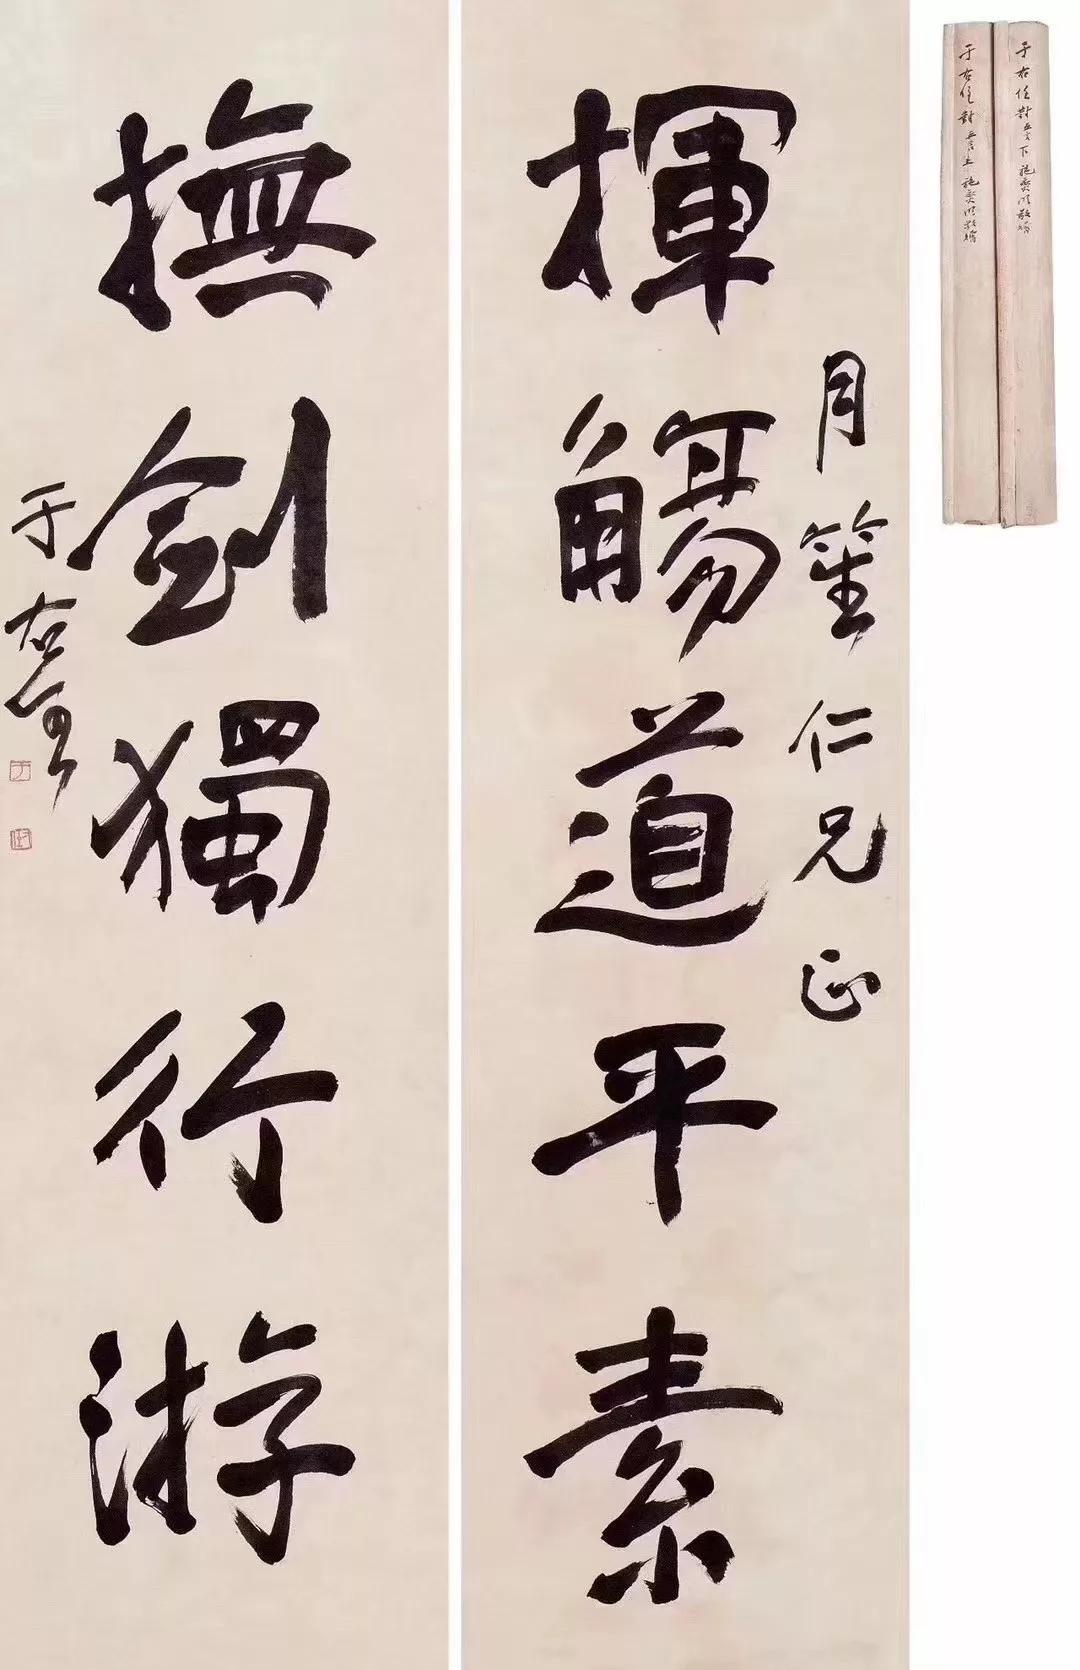 揮觴道平素
月笙仁兄正
撫劍獨行游
于右任
于右任對 五言下
于右任對 五言上